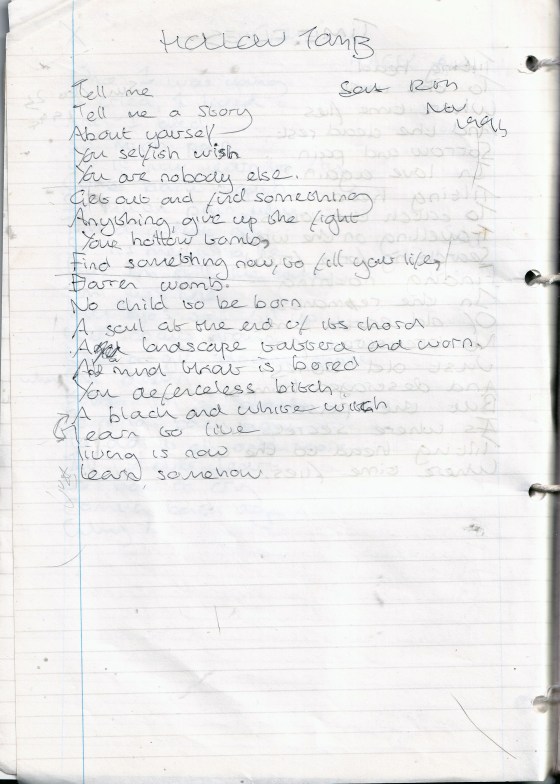 Hollow Tomb
Tell me
Sat
Nov
1996
Tell me a story
About yourself
You selfish wish
You are nobody else.
Get out and find something
Anything, give up the fight
Your hollow tomb,
Find something now, to fill your life,
Barren womb.
No child to be born
A soul at the end of its chord
A landscape tattered and worn
A mind that is bored
You defenceless bitch,
A black and white witch
Learn to live
living is now
Learn, somehow